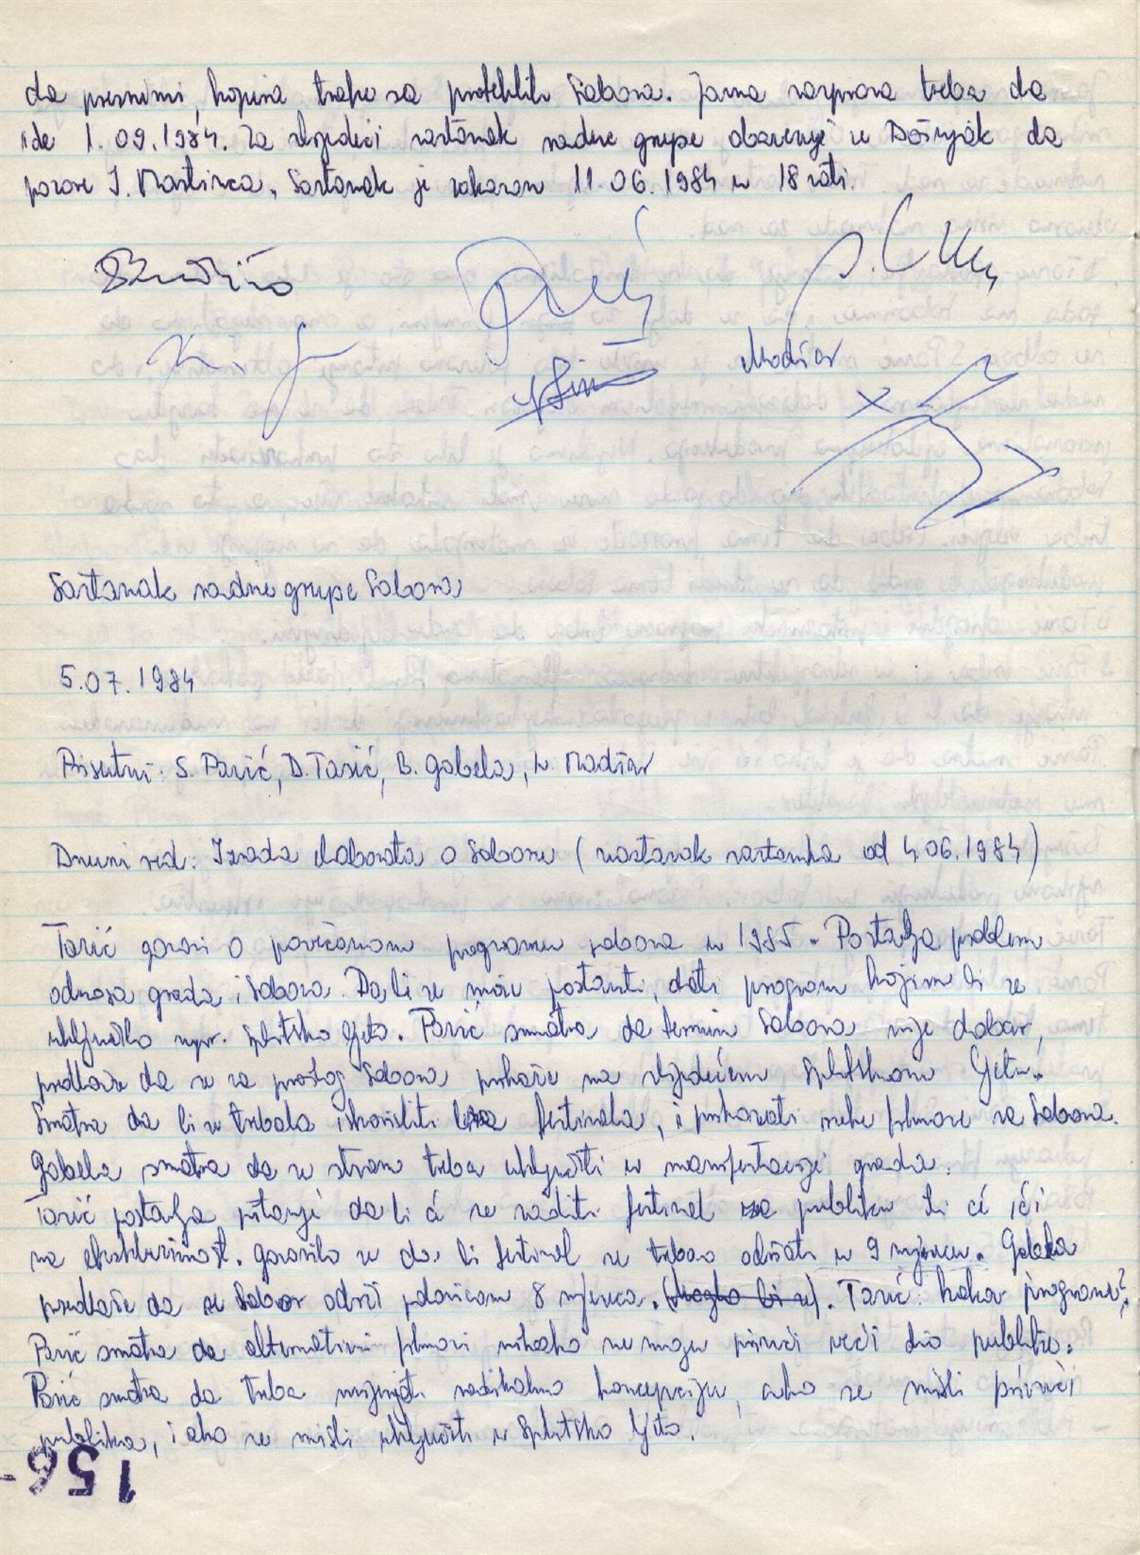 da presnimi, kopira trake sa proteklih Sabora. Javna rasprava treba da
ide 1.09.1984. Za slijedeći sastanak radne grupe obavezuje se Bošnjak da
pozove I. Martinca, Sastanak je zakazan 11 06.1984 u 18 sati.
Madžar
Sastanak radne grupe Sabora
5.07.1984
Prisutni: S. Pavić, D. Tasić, B. Gabela, L. Madžar
Dnevni red: Izrada elaborata o Saboru (nastavak sastanka od 4.06.1984)
Tasić govori o povećanom programu sabora u 1985. Postavlja problem
odnosa grada i Sabora. Da li se može postaviti, dati program kojim bi se
uključilo npr. Splitsko ljeto. Pavić smatra da termin Sabora nije dobar,
predlaže da se sa prošlog Sabora prikaže na slijedećem Splitskom ljetu.
Smatra da bi se trebala iskoristiti festivala, i prikazati neke filmove sa Sabora.
Gabela smatra da se stvar treba uključiti u manifestacije grada.
Tasić postavlja pitanje da li će se raditi festival za publiku ili će ići
na ekskluzivnost. Govorilo se da bi festival se trebao održati u 9 mjesecu. Gabela
predlaže da se Sabor održi polovicom 8 mjeseca. (moglo bi se). Tasić: kakav program?
Pavić smatra da alternativni filmovi nikako ne mogu privući veći dio publike.
Pavić smatra da treba mijenjati radikalno koncepciju, ako se misli privući
publika, i ako se misli uključiti u Splitsko ljeto.
156